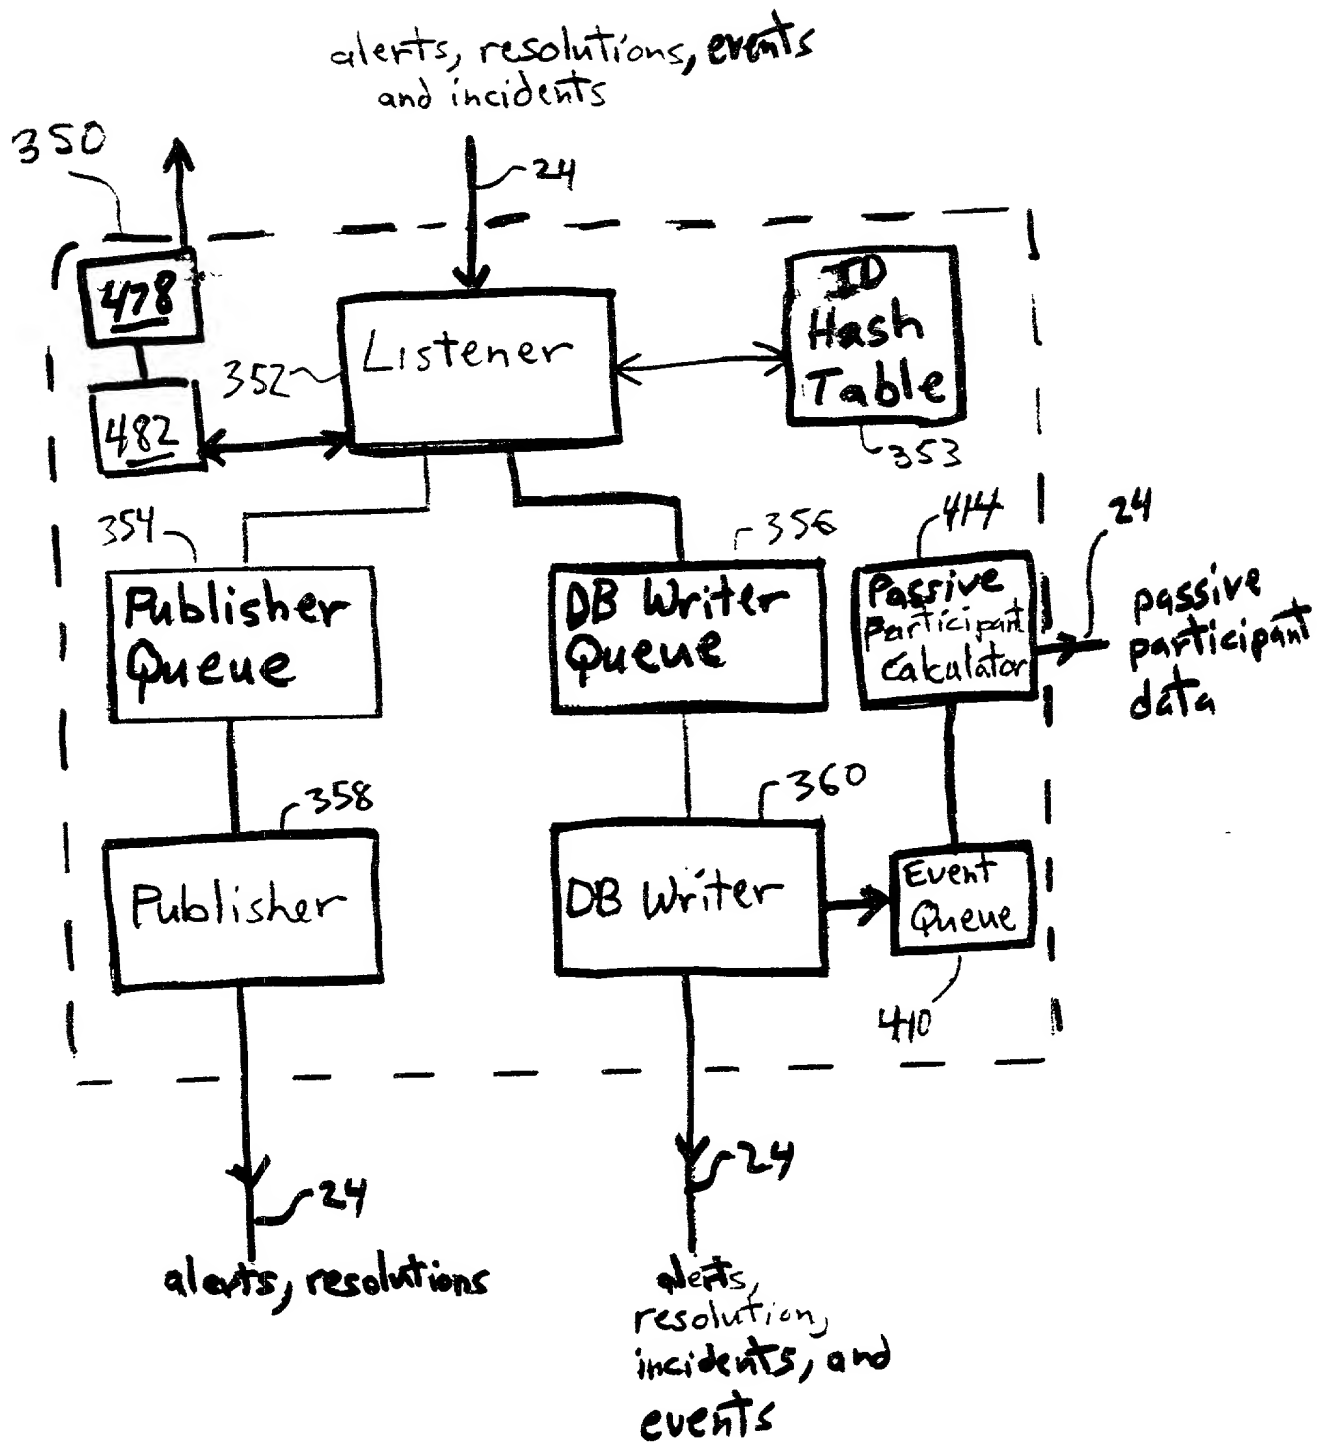 alerts, resolutions, events
and incidents
350
24
478
Listener
ID
Hash
Table
352
482
353
354
356
414
24
Publisher
Queue
DB Writer
Queue
Passive
Participant
Calculator
passive
participant
data
358
360
Publisher
DB Writer
Event
Queue
410
24
24
alerts, resolutions
alerts,
resolution,
incidents, and
events